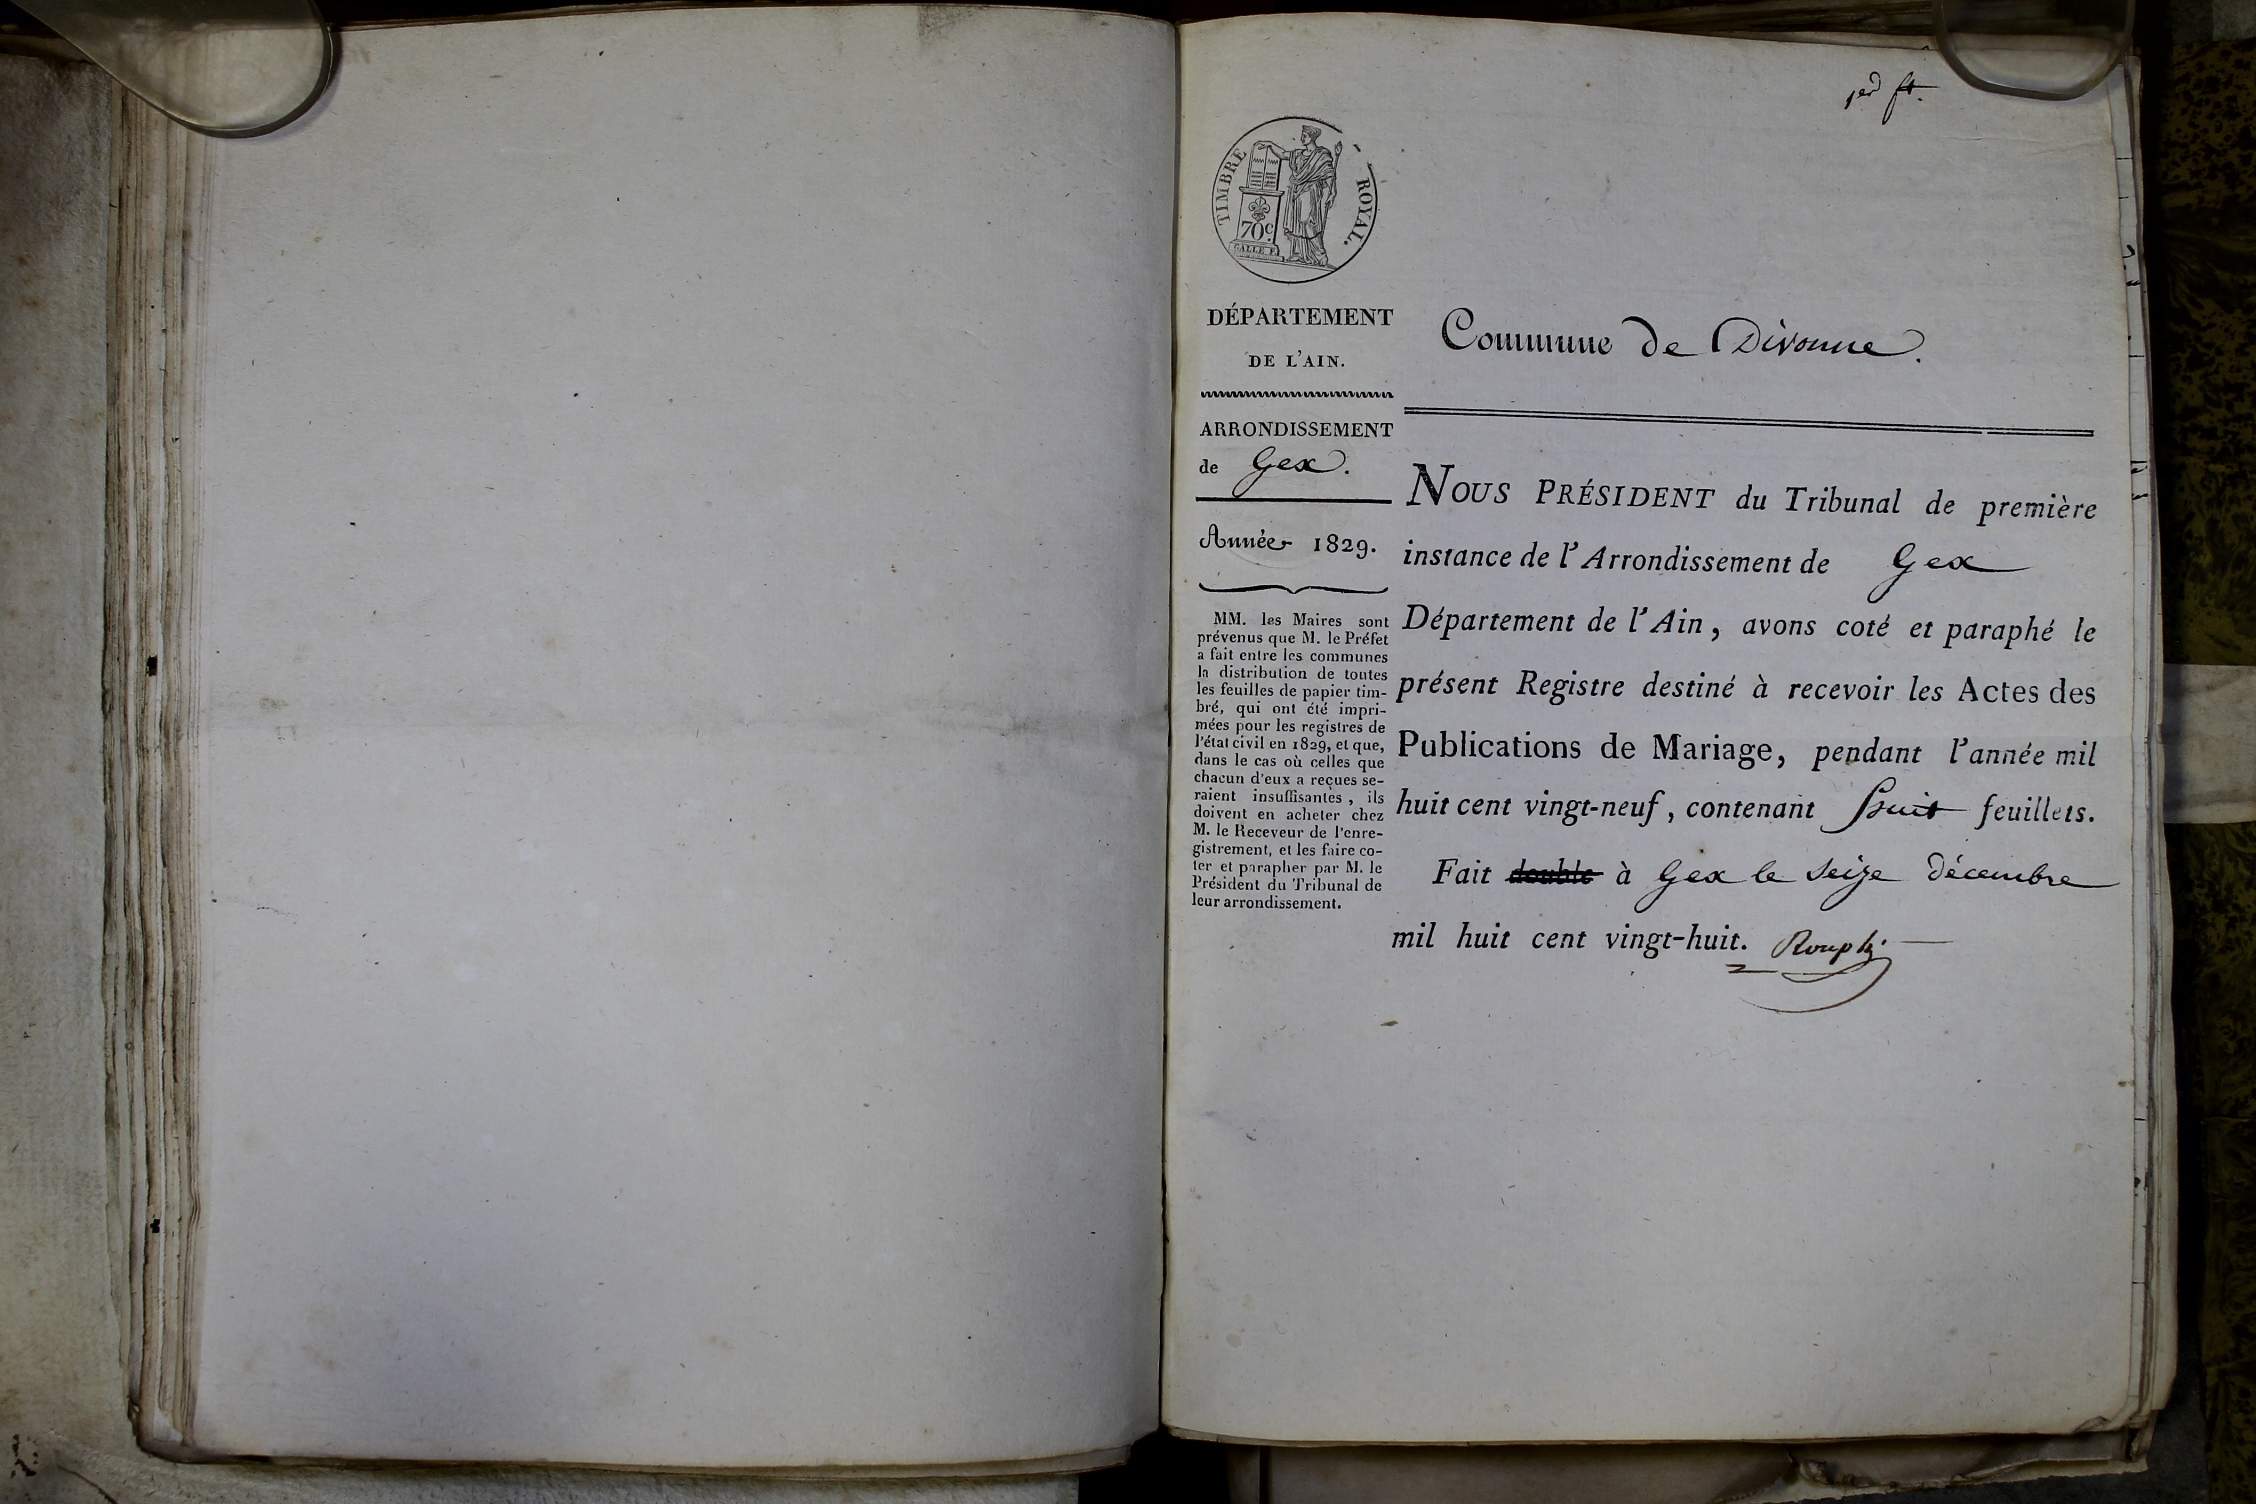 1er ft.
TIMBRE ROYAL.
70c.
GALLE F.
DÉPARTEMENT
DE L'AIN.
ARRONDISSEMENT
de Gex.
Année 1829.
MM. les Maires sont
prévenus que M. le Préfet
a fait entre les communes
la distribution de toutes
les feuilles de papier tim-
bré, qui ont été impri-
mées pour les registres de
l'état civil en 1829, et que,
dans le cas où celles que
chacun d'eux a reçues se-
raient insuffisantes, ils
doivent en acheter chez
M. le Receveur de l'enre-
gistrement, et les faire co-
ter et parapher par M. le
Président du Tribunal de
leur arrondissement.
Commune de Divonne.
NOUS PRÉSIDENT du Tribunal de première
instance de l'Arrondissement de Gex
Département de l'Ain, avons coté et paraphé le
présent Registre destiné à recevoir les Actes des
Publications de Mariage, pendant l'année mil
huit cent vingt-neuf, contenant huit feuillets.
Fait double à Gex le seize décembre
mil huit cent vingt-huit.